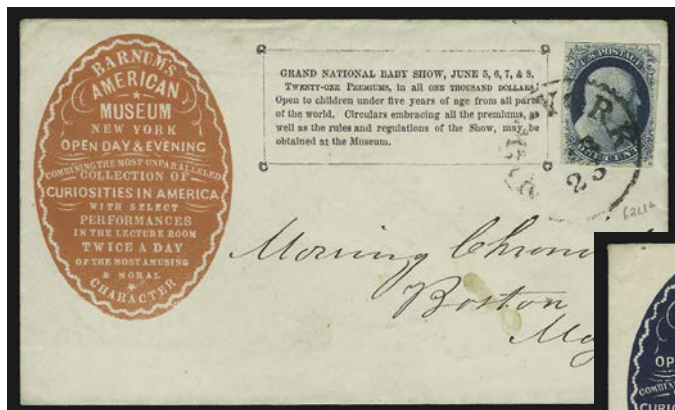 BARNUM'S
AMERICAN
MUSEUM
NEW YORK
OPEN DAY & EVENING
COMBINING THE MOST UNPARALLELED
COLLECTION OF
CURIOSITIES IN AMERICA
WITH SELECT
PERFORMANCES
IN THE LECTURE ROOM
TWICE A DAY
OF THE MOST AMUSING
& MORAL
CHARACTER
GRAND NATIONAL BABY SHOW, JUNE 5, 6, 7, & 8.
TWENTY-ONE PREMIUMS, in all ONE THOUSAND DOLLARS
Open to children under five years of age from all parts
of the world. Circulars embracing all the premiums, as
well as the rules and regulations of the Show, may be
obtained at the Museum.
U.S. POSTAGE
ONE CENT
YORK
23
Morning Chroni
Boston
OP
COMBIN
CURIO